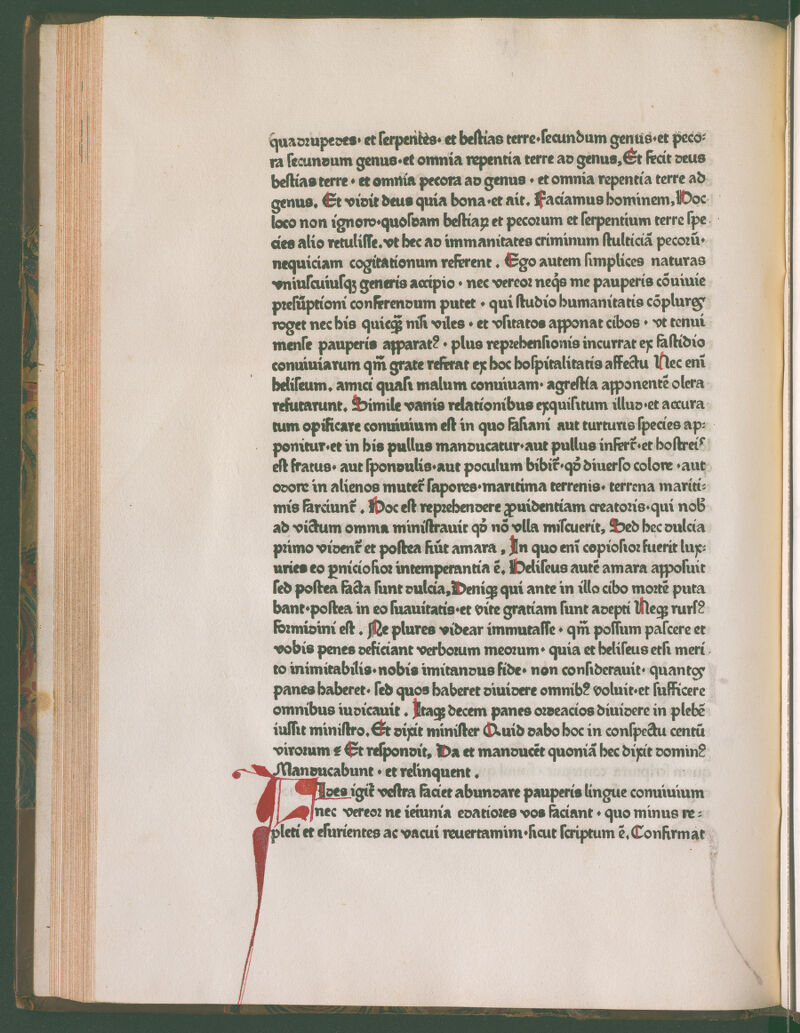 quadrupedes· et ſerpentes· et beſtias terre·ſecundum genus·et peco⸗
ra ſecundum genus·et omnia repentia terre ad genus, Et fecit deus
beſtias terre · et omnia pecora ad genus · et omnia repentia terre ad
genus. Et vidit deus quia bona·et ait. Faciamus hominem, Hoc
loco non ignoro·quoſdam beſtiaꝝ et pecorum et ſerpentium terre ſpe
cies alio retuliſſe.vt hec ad immanitates criminum ſtulticiā pecorū·
nequiciam cogitationum referent . Ego autem ſimplices naturas
vniuſcuiuſqꝫ generis accipio · nec vereor neqꝫs me pauperis cōuiuie
preſūptioni conferendum putet · qui ſtudio humanitatis cōplures
roget nec his quicqꝫ̄ niſi viles · et vſitatos apponat cibos · vt tenui
menſe pauperis apparatꝰ · plus reprehenſionis incurrat ex faſtidio
conuiuiarum qm̄ grate referat ex hoc hoſpitalitatis affectu Nec enī
heliſeum. amici quaſi malum conuiuam· agreſtia apponentē olera
refutarunt. Simile vanis relationibus exquiſitum illud·et accura
tum opificare conuiuium eſt in quo faſiani aut turturis ſpecies ap⸗
ponitur·et in his pullus manducatur·aut pullus infert̄·et hoſtreis
eſt fratus· aut ſpondulis·aut poculum bibit̄·qď diuerſo colore ·aut
odore in alienos mutet̄ ſapores·maritima terrenis· terrena mariti⸗
mis farciunt̄ . Hoc eſt reprehendere ꝓuidentiam creatoris·qui nob̄
ad victum omma miniſtrauit qď nō vlla miſcuerit, Sed hec dulcia
primo vident̄ et poſtea fiūt amara , In quo enī copioſior fuerit lux⸗
uries eo ꝑnicioſior intemperantia ē. Heliſeus autē amara appoſuit
ſed poſtea facta ſunt dulcia, Deniqꝫ qui ante in illo cibo mortē puta
bant·poſtea in eo ſuauitatis·et vite gratiam ſunt adepti Neqꝫ rurſꝰ
formidini eſt . Ne plures videar immutaſſe · qm̄ poſſum paſcere et
vobis penes deficiant verborum meorum· quia et heliſeus etſi meri
to inimitabilis·nobis imitandus fide· non conſiderauit· quantos
panes haberet· ſed quos haberet diuidere omnibꝰ voluit·et ſufficere
omnibus iudicauit . Itaqꝫ decem panes ordeacios diuidere in plebē
iuſſit miniſtro. Et dixit miniſter Quid dabo hoc in conſpectu centū
virorum ? Et reſpondit, Da et manducēt quoniā hec dixit dominꝰ
Manducabunt · et relinquent .
Fides igit̄ veſtra faciet abundare pauperis lingue conuiuium
nec vereor ne ieiunia edatiores vos faciant · quo minus re⸗
pleti et eſurientes ac vacui reuertamim·ſicut ſcriptum ē. Confirmat